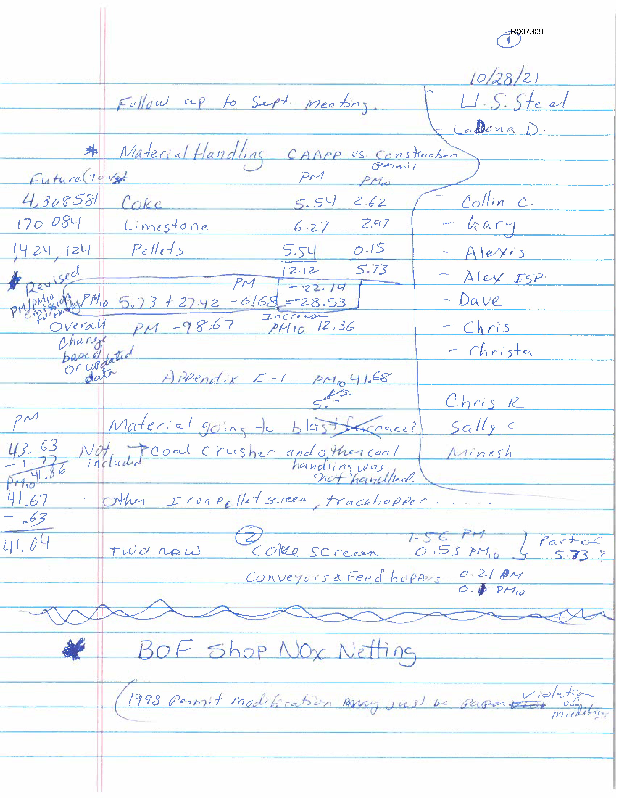 1
10/28/21
Follow up to Sept. meeting.
U.S. Steel
- LaDena D.
* Material Handling CAAPP vs. Construction
permit
Future (tons)
PM PM10
4,308581 Coke 5.54 2.62
- Collin C.
170 084 Limestone 6.27 2.97
- Gary
1,424,124 Pellets 5.54 0.15
- Alexis
12.12 5.73
- Alex ISP.
* Revised
PM -22.14
PM/PM10
PM10 5.73 + 27.42 -61.68 = -28.53
- Dave
Increase
Overall PM -98.67 PM10 12.36
- Chris
Change
based
or updated
data
- Christa
Appendix E-1 PM10 41.68
vs.
5.
Chris R
PM
Material going to blast furnaces?
Sally C
43.63 Not → coal crusher and other coal
included
handling was
not handled.
Minesh
- 1.77
PM10 41.86
41.67 - Other Iron pellet screen, trackhopper......
- .63
41.04
Two new 2 coke screen 1.56 PM
0.55 PM10
Part of
5.73?
Conveyors & Feed hoppers 0.21 PM
0.1 PM10
* BOF Shop NOx Netting
(1998 Permit modification may just be paper violation
only